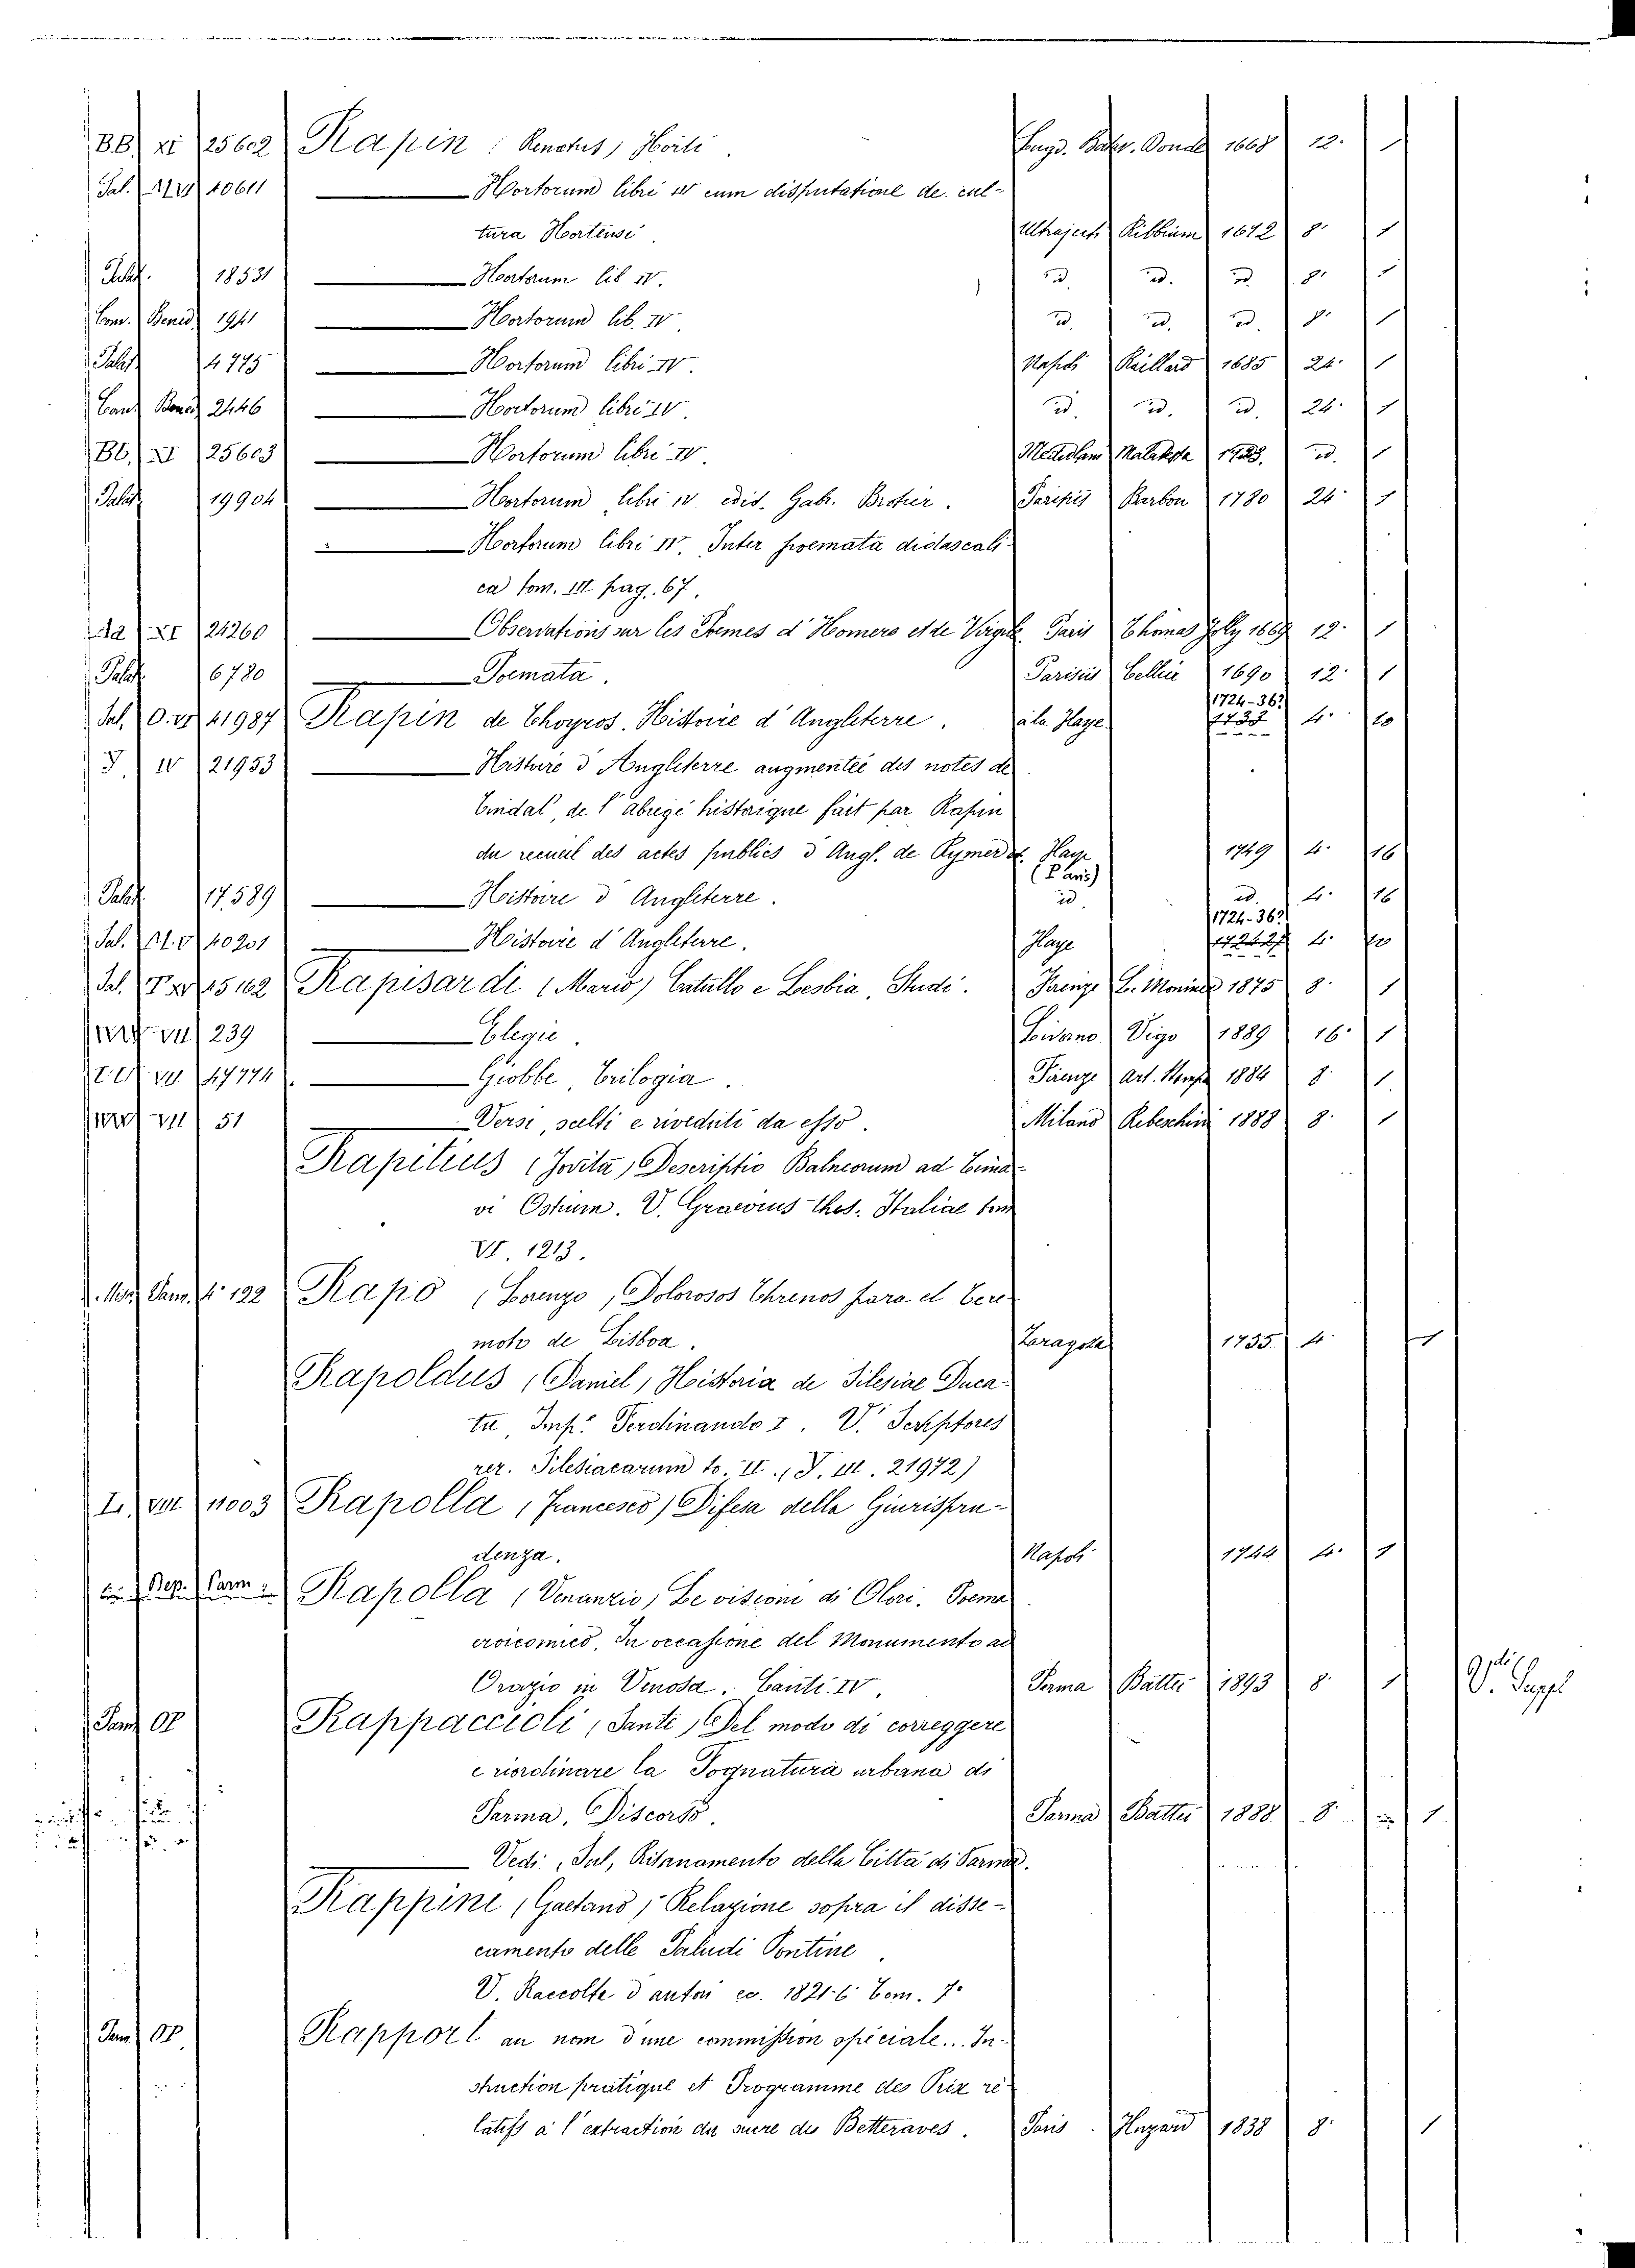 BB. XI 25602 Rapin (Renatus) Horti. Lugd. Batav. 1668 12. 1
Sal. 10611 Hortorum libri IV cum disputatione de cul-
tura Hortensi. Ultrajecti Ribbium 1672 8. 1
Palat. 18531 Hortorum lib. IV. id. id. id. 8. 1
Com. Bened. 1941 Hortorum lib. IV. id. id. id. 8. 1
Palat. 4775 Hortorum libri IV. Napoli Raillard 1685 24. 1
Bened. 2446 Hortorum libri IV. id. id. id. 24. 1
BB. XI 25603 Hortorum libri IV. Mediolani Malatesta id. 1
Palat. 19904 Hortorum libri IV. edid. Gabr. Brotier. Parisiis Barbou 1780 24. 1
Hortorum libri IV. Inter poemata didascali-
ca tom. III pag. 67.
XI 24260 Observations sur les Poemes d'Homere et de Virgile. Paris Thomas Joly 1669 12. 1
Palat. 6780 Poemata. Parisiis Cellier 1690 12. 1
1724-36?
Sal. 41987 Rapin de Thoyros. Histoire d'Angleterre. à la Haye 4. 10
IV 21953 Histoire d'Angleterre augmentée des notes de
Tindal, de l'abregé historique fait par Rapin
du recueil des actes publics d'Angl. de Rymer &. Haye 1749 4. 16
(Paris)
Palat. 17.589 Histoire d'Angleterre. id. id. 4. 16
1724-36?
Sal. 40201 Histoire d'Angleterre. Haye 4. 10
Sal. 45162 Rapisardi (Mario) Catullo e Lesbia, Studi. Firenze 1875 8. 1
VII 239 Elegie. Vigo 1889 16. 1
VII 47774 Giobbe, Trilogia. Firenze Art. Stampa 1884 8. 1
VII 51 Versi, scelti e riveduti da esso. Milano Rebeschini 1888 8. 1
Rapitius (Jovita) Descriptio Balneorum ad Tima-
vi Ostium. V. Graevius thes. Italiae tom
VI. 1213.
122 Rapó (Lorenzo) Dolorosos Threnos para el Tere-
moto de Lisboa. Zaragoza 1755. 4. 1
Rapoldus (Daniel) Historia de Silesiae Duca-
tu, Imp. Ferdinando I. V. Scriptores
rer. Silesiacarum to. II. (J. III. 21972)
L. VIII 11003 Rapolla (Francesco) Difesa della Giurispru-
denza. Napoli 1744 4. 1
Parm. Rapolla (Venanzio) Le visioni di Clori. Poema
eroicomico. In occasione del Monumento ad
Orazio in Venosa. Canti IV. Parma Battei 1893 8. 1 V. Suppl
Parm. Rappaccioli (Santi) Del modo di correggere
e riordinare la Fognatura urbana di
Parma. Discorso. Parma Battei 1888 8. 1
Vedi, Sul, Risanamento della Città di Parma.
Rappini (Gaetano) Relazione sopra il disse-
camento delle Paludi Pontine.
V. Raccolta d'autori ec. 1821.6 Tom. 7.
Parm. Rapport au nom d'une commission spéciale... In-
struction pratique et Programme des Prix re-
latifs à l'extraction du sucre des Betteraves. Paris Huzard 1838 8. 1